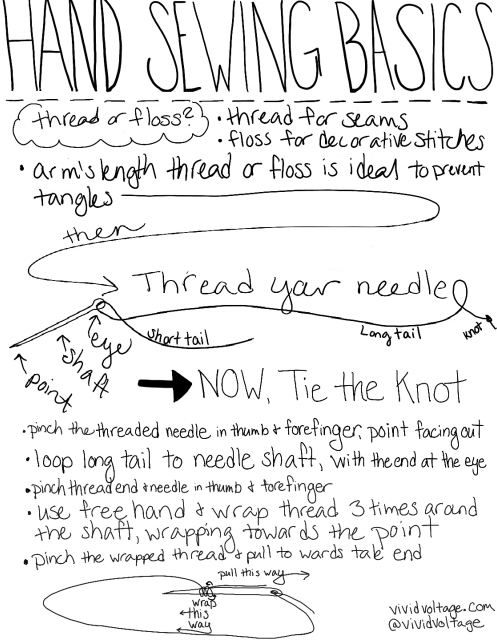 HAND SEWING BASICS
thread or floss?
• thread for seams
• floss for decorative stitches
• arm's length thread or floss is ideal to prevent
tangles
then
Thread your needle
eye
shaft
point
short tail
Long tail
knot
NOW, Tie the Knot
• pinch the threaded needle in thumb & forefinger, point facing out
• loop long tail to needle shaft, with the end at the eye
• pinch thread end & needle in thumb & forefinger
• use free hand & wrap thread 3 times around
the shaft, wrapping towards the point
• Pinch the wrapped thread & pull to wards tail end
pull this way
wrap
this
way
vividvoltage.com
@vividvoltage